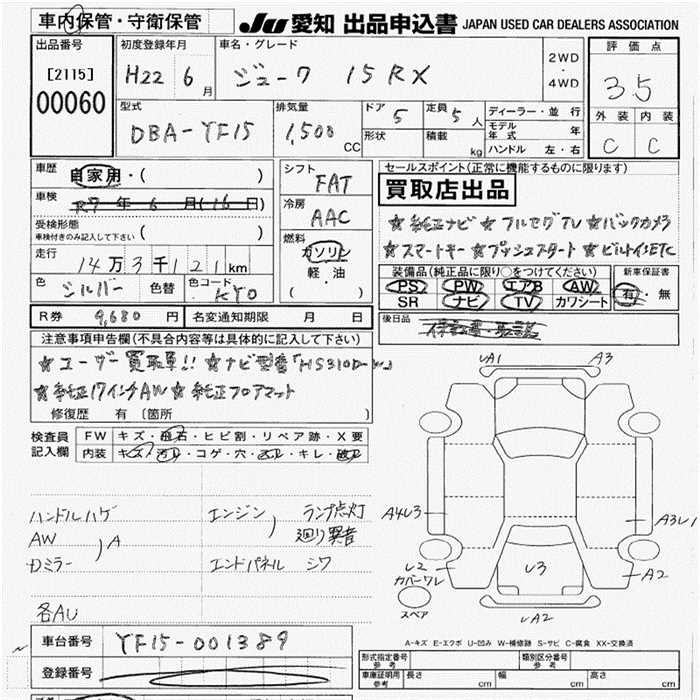 車内保管・守衛保管
JU 愛知 出品申込書 JAPAN USED CAR DEALERS ASSOCIATION
出品番号
[2115]
00060
初度登録年月
H22 6月
車名・グレード
ジューク 15RX
2WD
・
4WD
評価点
3.5
外装 内装
C C
型式
DBA-YF15
排気量
1,500 CC
ドア 5
形状
定員 5人
積載 kg
ディーラー・並行
モデル年式 年
ハンドル 左・右
車歴
自家用・( )
車検
R7年6月(16日)
受検形態
車検付きのみ記入して下さい ( )
走行
14万3千121km
色 シルバー 色替 色コード KY0
シフト
FAT
冷房
AAC
燃料
ガソリン
軽・油
( )
セールスポイント(正常に機能するものに限ります)
買取店出品
☆純正ナビ ☆フルセグTV ☆バックカメラ
☆スマートキー ☆プッシュスタート ☆ビルトインETC
装備品(純正品に限り○をつけてください)
PS PW エアB AW
SR ナビ TV カワシート
新車保証書
有・無
後日品
R券 9,680円 名変通知期限 月 日
注意事項申告欄(不具合内容等は具体的に記入して下さい)
☆ユーザー買取車!! ☆ナビ型番「HS310D-W」
☆純正17インチAW ☆純正フロアマット
修復歴 有 〔箇所 〕
検査員記入欄
FW キズ・飛石・ヒビ割・リペア跡・X要
内装 キズ・汚レ・コゲ・穴・凹ミ・キレ・破レ
ハンドルハゲ
AW
ドミラー
A
エンジン ランプ点灯
廻り異音
エンドパネル シワ
各AU
UA1 A3
A4U3 A3U1
U3
U2
カバーワレ
A2
スペア
UA2
A-キズ E-エクボ U-凹み W-補修跡 S-サビ C-腐食 XX-交換済
車台番号 YF15-001389
登録番号
型式指定番号
参考
類別区分番号
参考
車庫証明用
参考
長さ cm 幅 cm 高さ cm